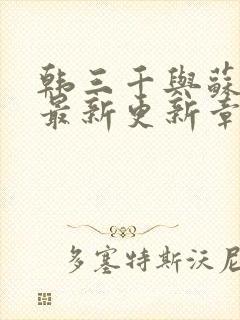 韩三千與蘇
最新更新章
多塞特斯沃尼